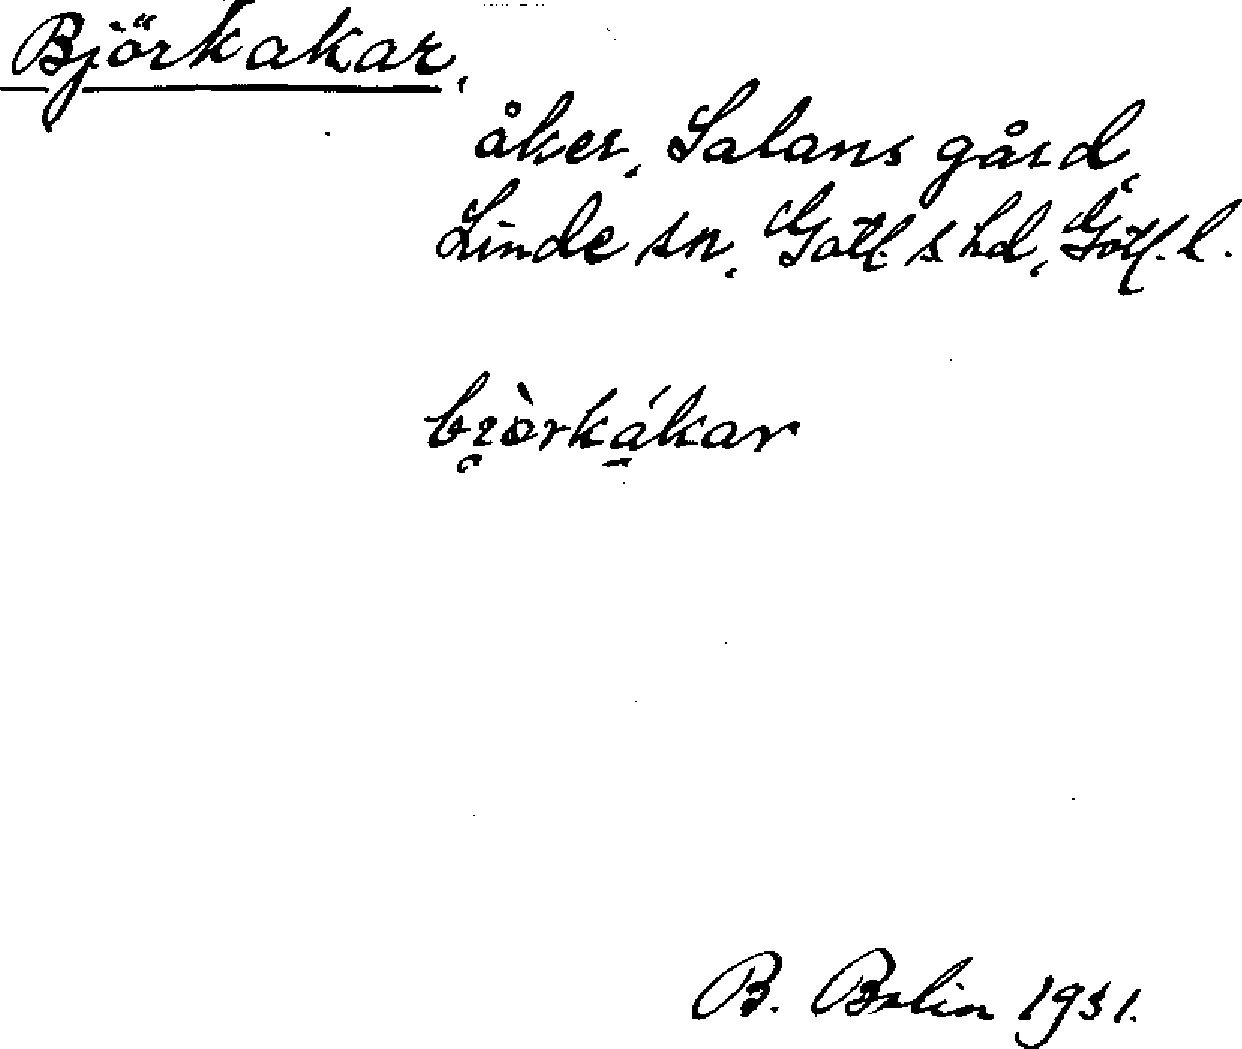 Björkakar,
åker, Salans gård,
Linde sn, Gotl. s hd, Gotl. l.
bi̯òrká̱kar
B. Belin 1931.